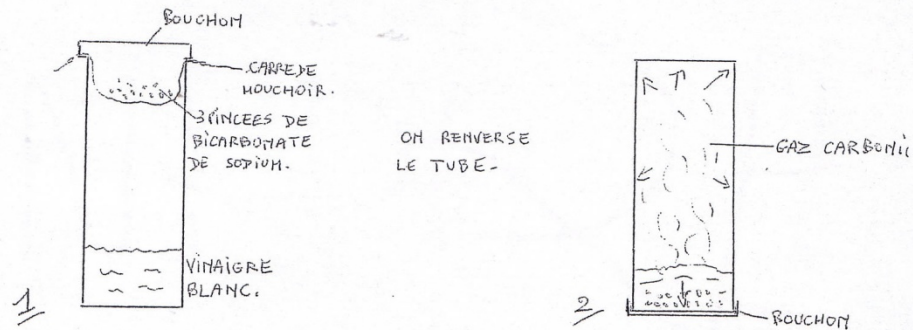 BOUCHON
CARRE DE
MOUCHOIR.
3 PINCEES DE
BICARBONATE
DE SODIUM.
VINAIGRE
BLANC.
1
ON RENVERSE
LE TUBE.
GAZ CARBONIC
BOUCHON
2